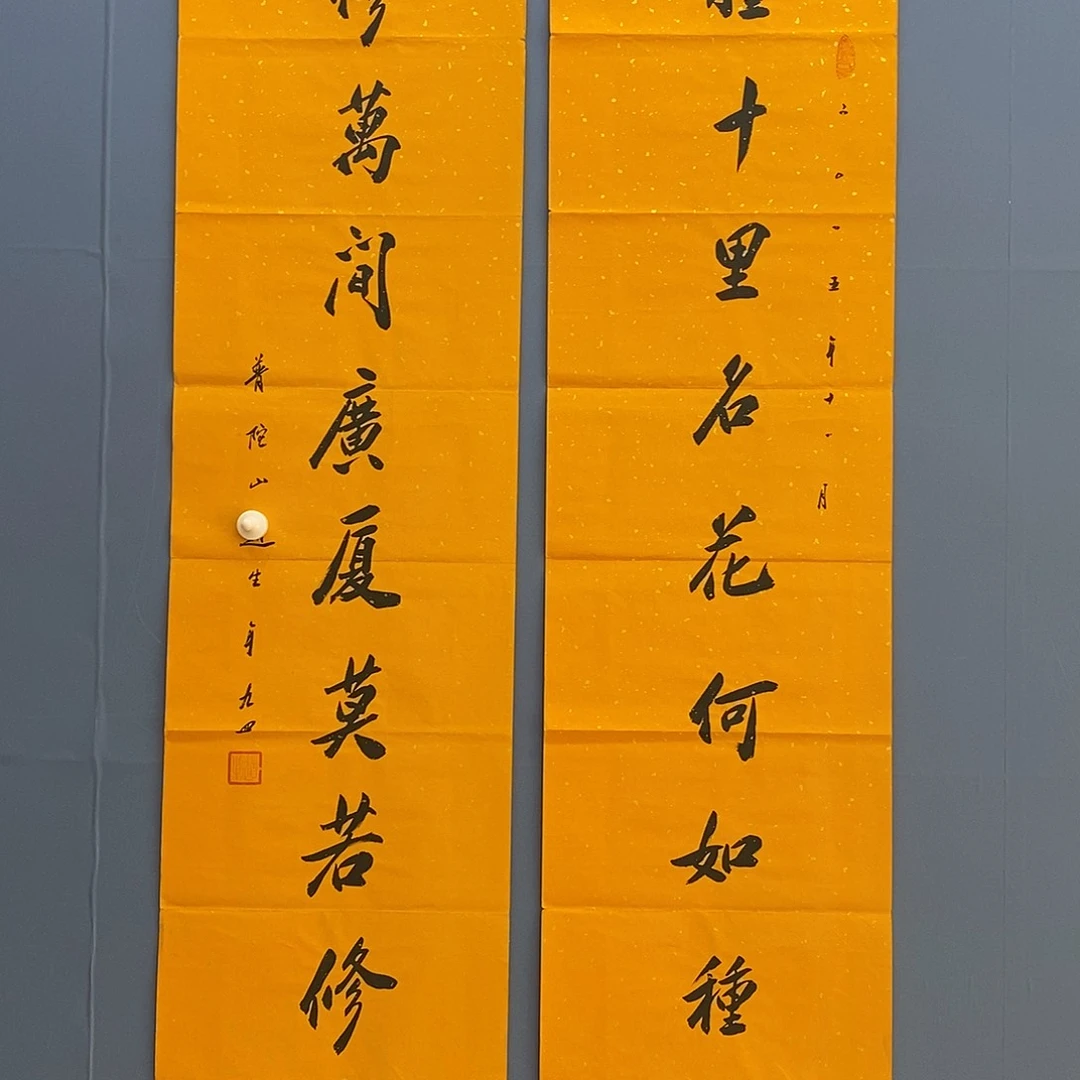 二〇一五年十一月
種十里名花何如種
修萬间廣厦莫若修
普陀山生年九四